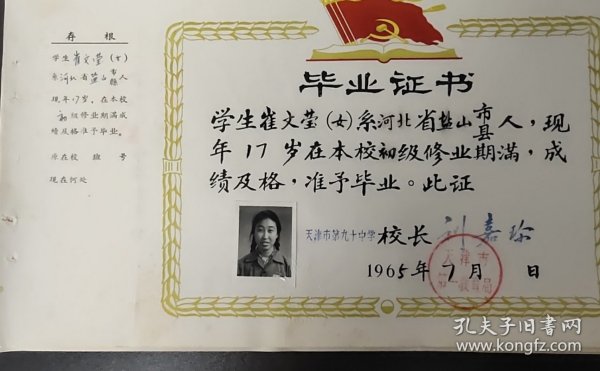 存根
学生崔文莹(女)
系河北省盐山市縣人
现年17岁，在本校
初级修业期满成
绩及格准予毕业。
原在校 班 号
现在何处
毕业证书
学生崔文莹(女)系河北省盐山市县人，现
年17岁在本校初级修业期满，成
绩及格，准予毕业。此证
天津市第九十中学 校长 刘嘉珍
1965年7月 日
天津市
教育局
孔夫子旧书网
www.kongfz.com